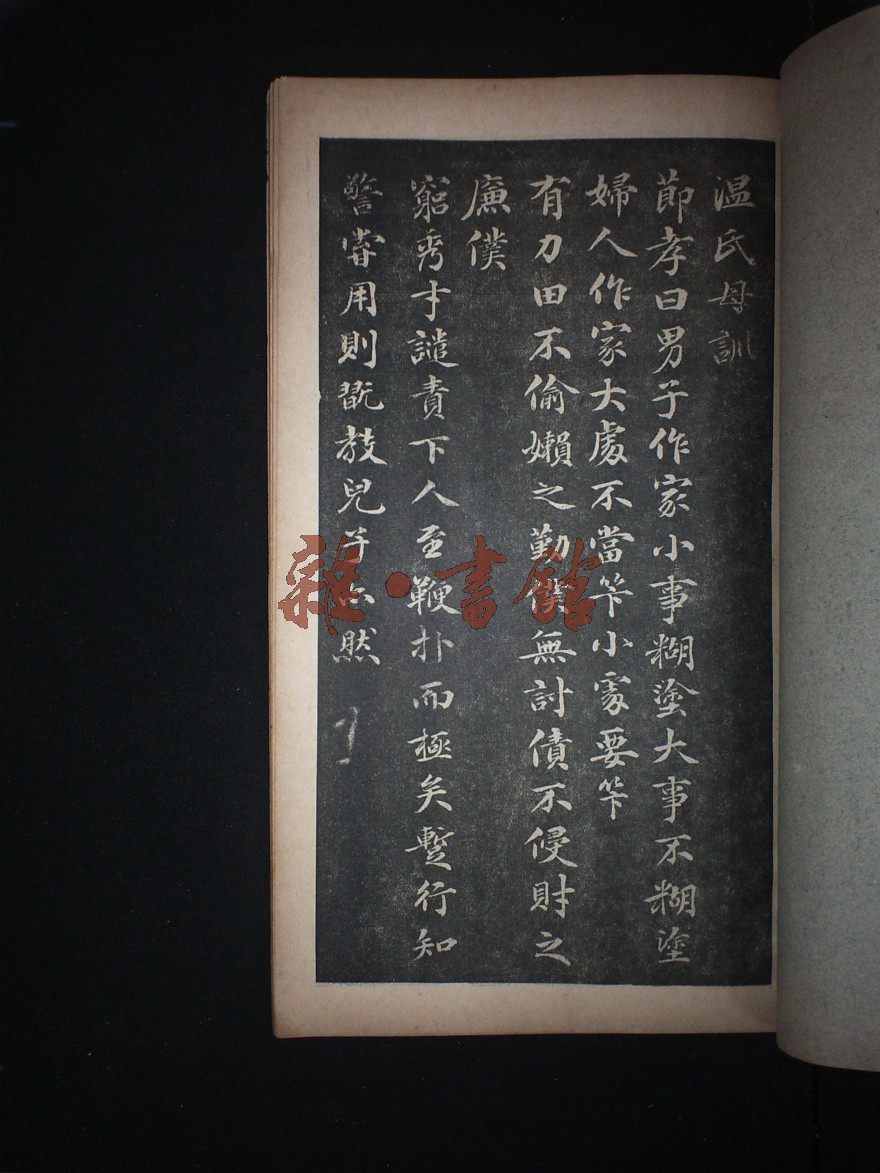 温氏母訓
節孝曰男子作家小事糊塗大事不糊塗
婦人作家大處不當笇小處要笇
有力田不偷嬾之勤僕無討債不侵財之
廉僕
窮秀才譴責下人至鞭扑而極矣蹔行知
警嘗用則翫教兒子亦然
雜·書館